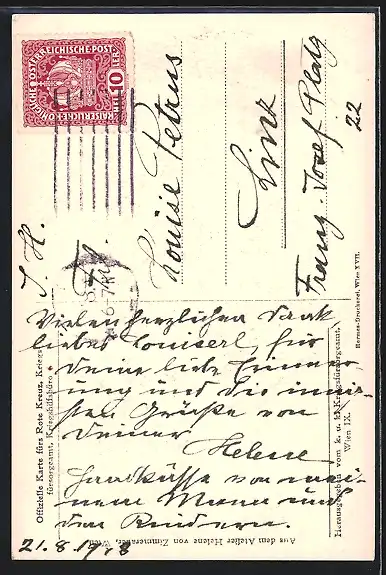 KAISERLICHE KÖNIGLICHE ÖSTERREICHISCHE POST
10 HELLER
I. H.
Louise Petrus
Linz
Franz-Josef Platz
22
Vielen herzlichen Dank
liebes Louiserl, für
Deine liebe Erinner-
ung und die innig-
sten Grüße von
Deiner
Helene
Handküsse von mei-
nem Manne und
den Kindern.
21.8.1918
Offizielle Karte fürs Rote Kreuz, Kriegs-
fürsorgeamt, Kriegshilfsbüro
Hermes-Druckerei, Wien XVII.
Herausgegeben vom k. u. k. Kriegsfürsorgeamt,
Wien IX.
Aus dem Atelier Helene von Zimmerauer, Wien